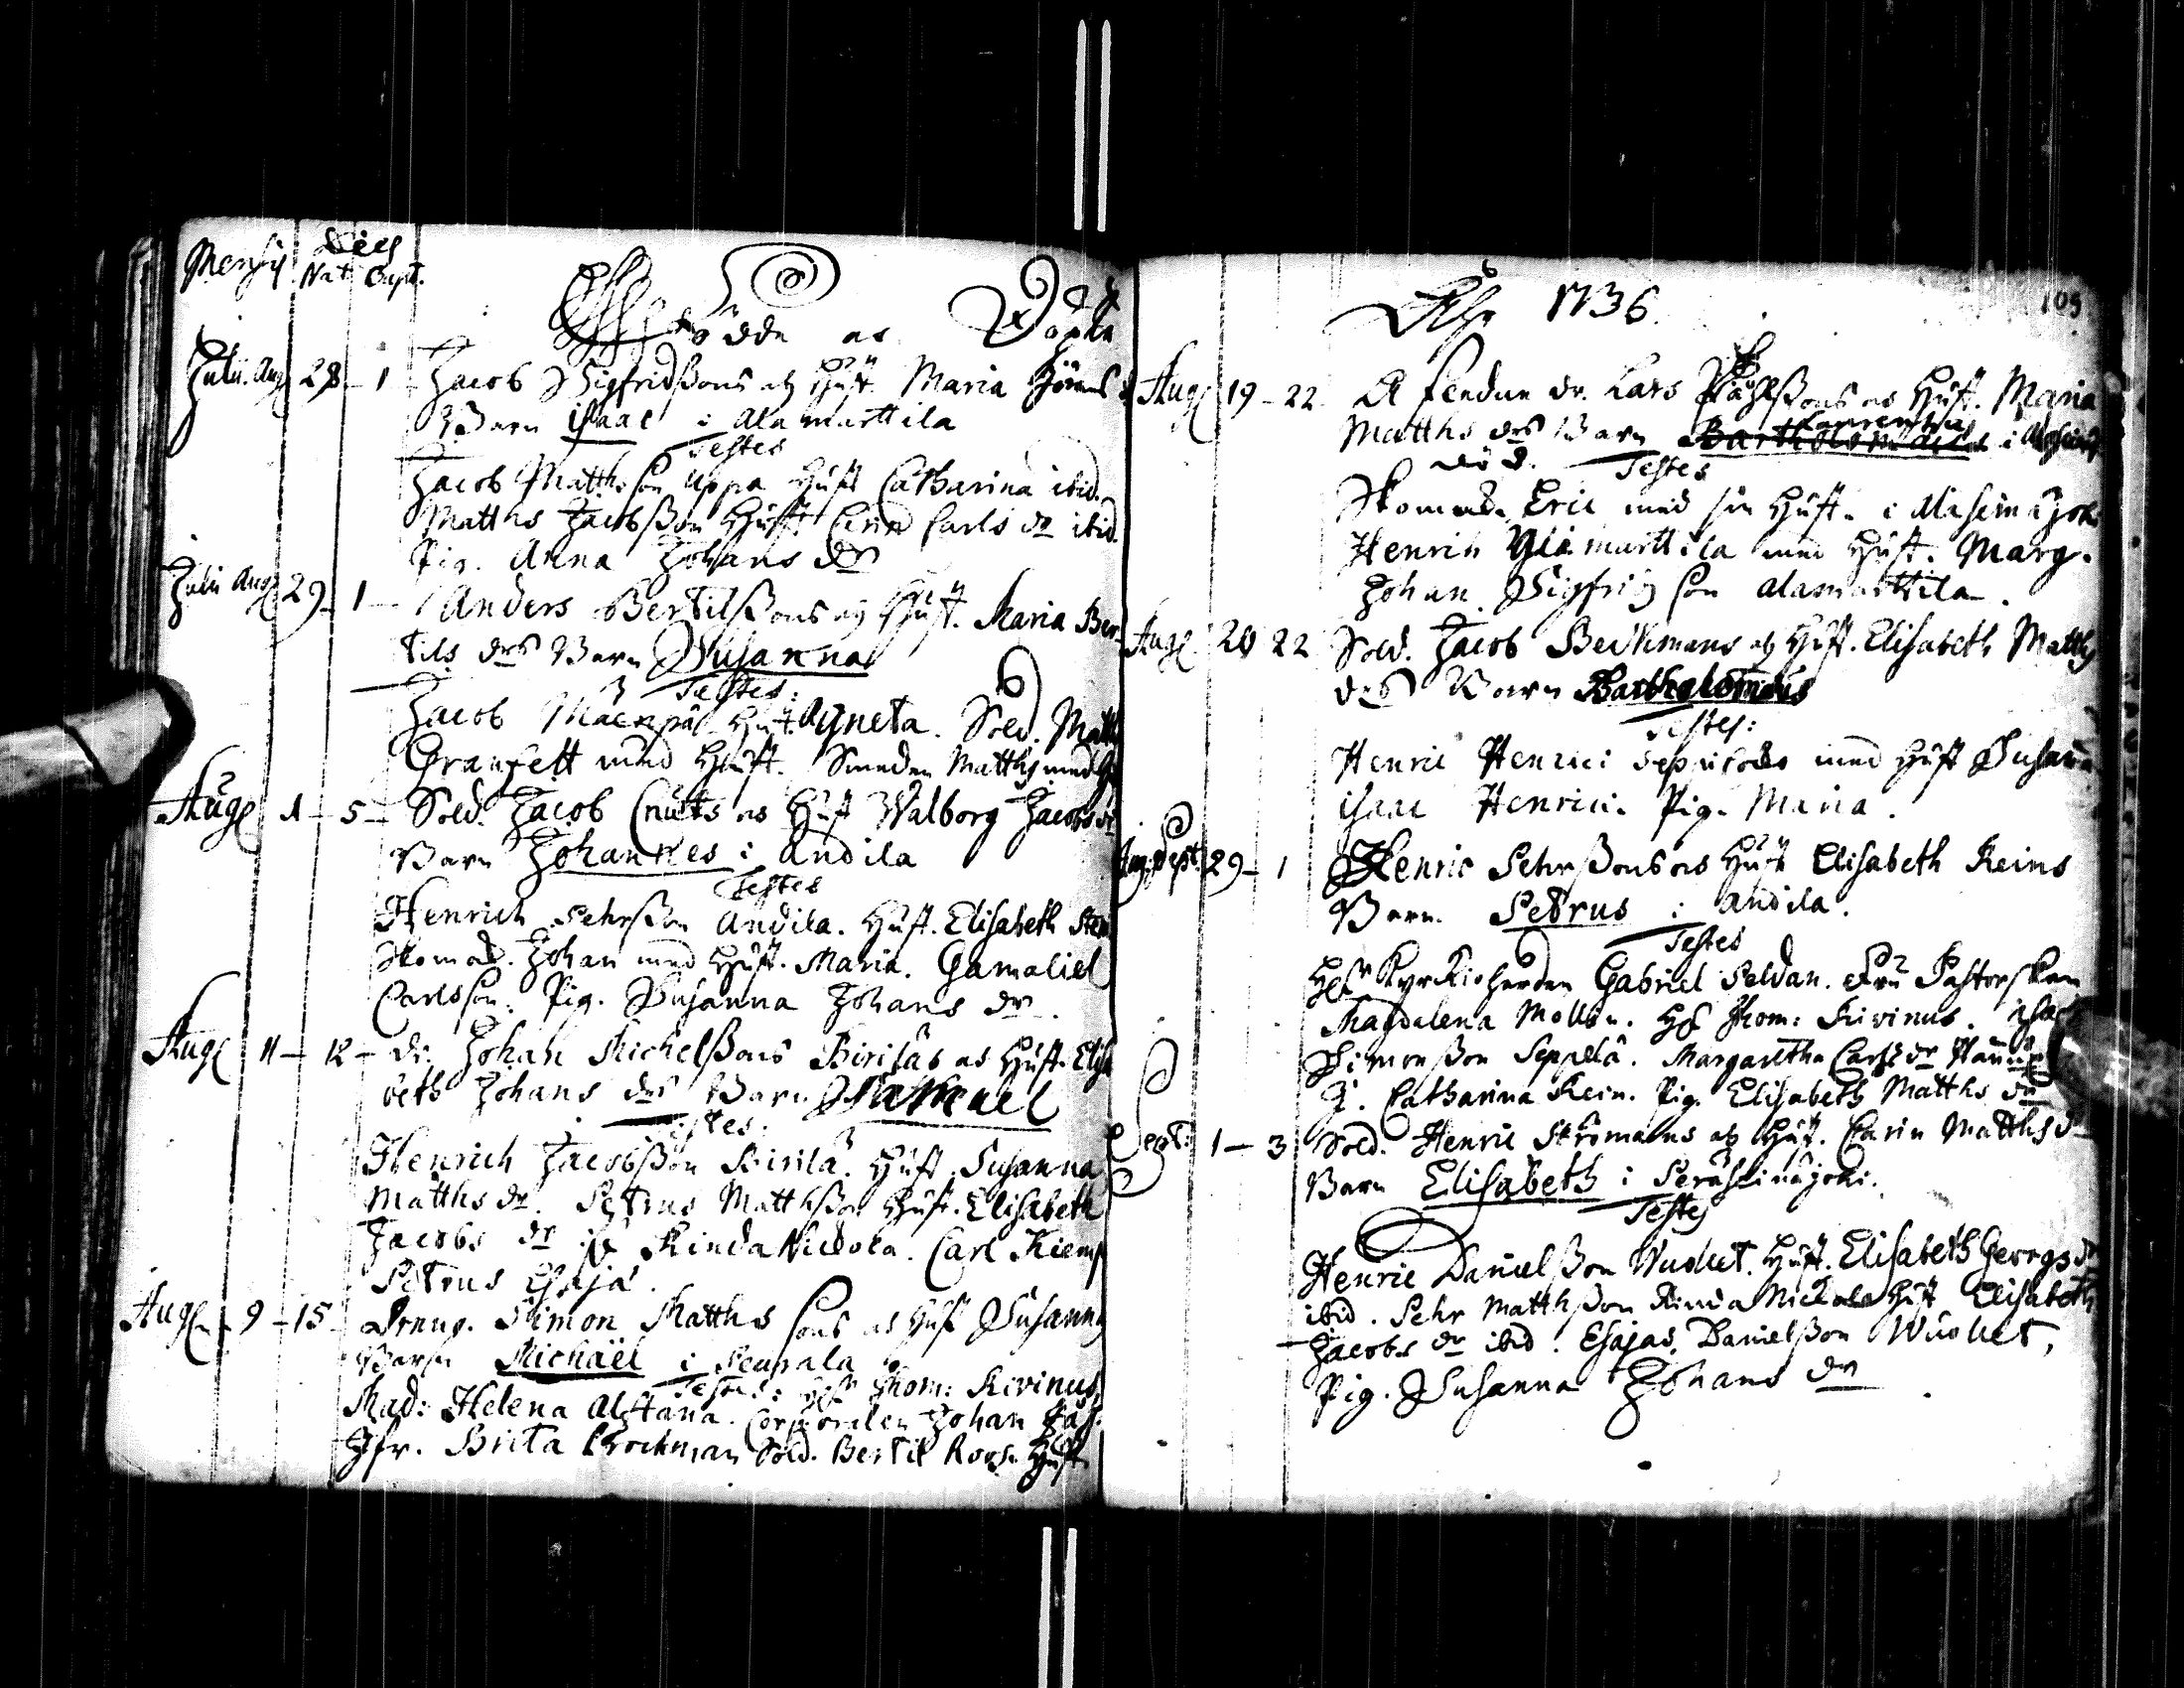 Mensis Dies
Nat. Bapt.
Födde och Döpte
Julii. Aug. 28 - 1 - Jacob Sigfridßons och Hust. Maria
Barn Isaac i Alamarttila
Testes
Jacob Matthsson Uppa Hust Catharina ibid.
Matths Jacobßon Hust Carin Carls dr ibid.
Pig. Anna Johans dr
Julii Aug 29 - 1 - Anders Bertilßons och Hust. Maria Ber-
tils drs Barn Susanna
Testes:
Jacob Mäenpä Hust. Agneta. Sold. Matth
Granfelt med Hust. Smeden Matths med
Aug 1 - 5 - Sold. Jacob Cnuts och Hust Walborg Jacobs dr
Barn Johannes i Andila
Testes
Henrich Pehrßon Andila. Hust. Elisabeth
Skomak. Johan med Hust. Maria. Gamaliel
Carlsson. Pig. Susanna Johans dr.
Aug 11 - 12 - dr. Johan Michelßons Kirilas och Hust. Elisa
beth Johans drs Barn Samuel
Testes.
Henrich Jacobßon Kirilä. Hust. Susanna
Matths dr. Petrus Matthßon Hust. Elisabeth
Jacobs dr Rinda Nickola. Carl
Petrus
Aug 9 - 15 - Dreng. Simon Matths sons och Hust Susanna
Barn Michäel i Peurala
Testes: Thom: Kivinus,
Mad: Helena Corporalen Johan
Jfr. Brita Brockman Sold. Bertil Roos. Hust
Åhr 1736.
109
Aug 19 - 22 dr. Lars Påhlßons och Hust. Maria
Matths drs Barn Laurentius
Bartholomäus i
död. Testes
Skomak. Eric med sin Hust. i
Henrik Ylimarttila med Hust. Marg.
Johan Sigfridsson Alamarttila.
Aug 20 22 Sold. Jacob Beckmans och Hust. Elisabeth Matths
drs Barn Bartholomäus
Testes:
Henric Henrici med Hust Susanna
Isaac Henrici. Pig. Maria.
Aug. Sept. 29 - 1 Henric Pehrßons och Hust Elisabeth Reins
Barn Petrus i Andila.
Testes
Kyrkioherden Gabriel Peldan. Fru Pastorskan
Magdalena Thom: Kivinus.
Simonßon Seppelä. Margaretha Carls dr
J. Catharina Rein. Pig. Elisabeth Matths dr
Sept: 1 - 3 Sold. Henric Strömans och Hust. Carin Matths dr
Barn Elisabeth i Peräseinäjoki.
Testes
Henric Danielßon Wuolet. Hust. Elisabeth Georgs dr
ibid. Pehr Matthßon Rinda Nickola Hust Elisabeth
Jacobs dr ibid. Esajas Danielßon Wuolet,
Pig. Susanna Johans dr